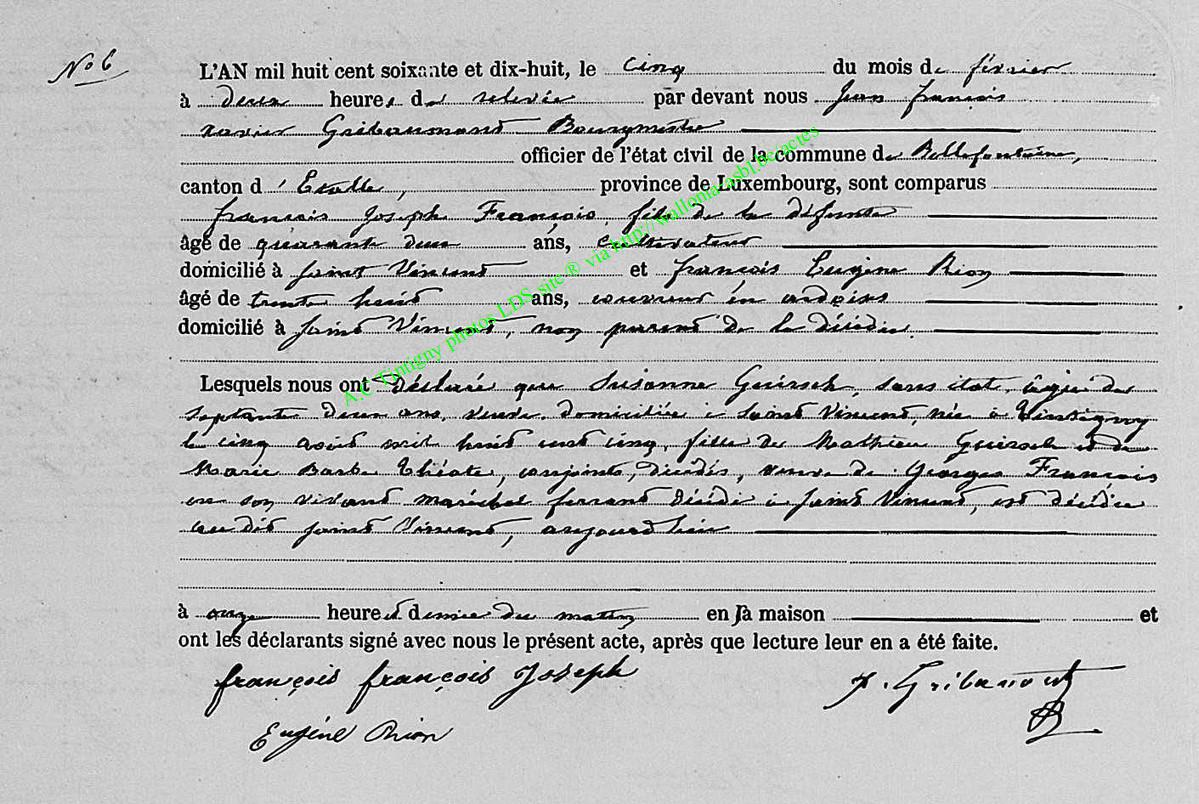 No 6
L'AN mil huit cent soixante et dix-huit, le cinq du mois de février
à deux heures de relevée par devant nous Jean françois
xavier Gribaumont Bourgmestre
officier de l'état civil de la commune de Bellefontaine,
canton d'Etalle, province de Luxembourg, sont comparus
françois Joseph François fils de la défunte
âgé de quarante deux ans, cultivateur
domicilié à Saint Vincent et françois Eugène Rion
âgé de trente huit ans, couvreur en ardoises
domicilié à Saint Vincent, non parent de la décédée
Lesquels nous ont déclaré que Susanne Guirsch, sans état, âgée de
septante deux ans, veuve, domiciliée à Saint Vincent, née à Tintigny
le cinq août mil huit cent cinq, fille de Mathieu Guirsch et de
Marie Barbe Théate, conjoints, décédés, veuve de Georges François
en son vivant maréchal ferrant décédé à Saint Vincent, est décédée
au dit Saint Vincent, aujourd'hui
à onze heures et demie du matin en sa maison et
ont les déclarants signé avec nous le présent acte, après que lecture leur en a été faite.
françois françois Joseph
Eugéne Rion
A.C Tintigny photos LDS site ® via http://wallonia-asbl.be/actes